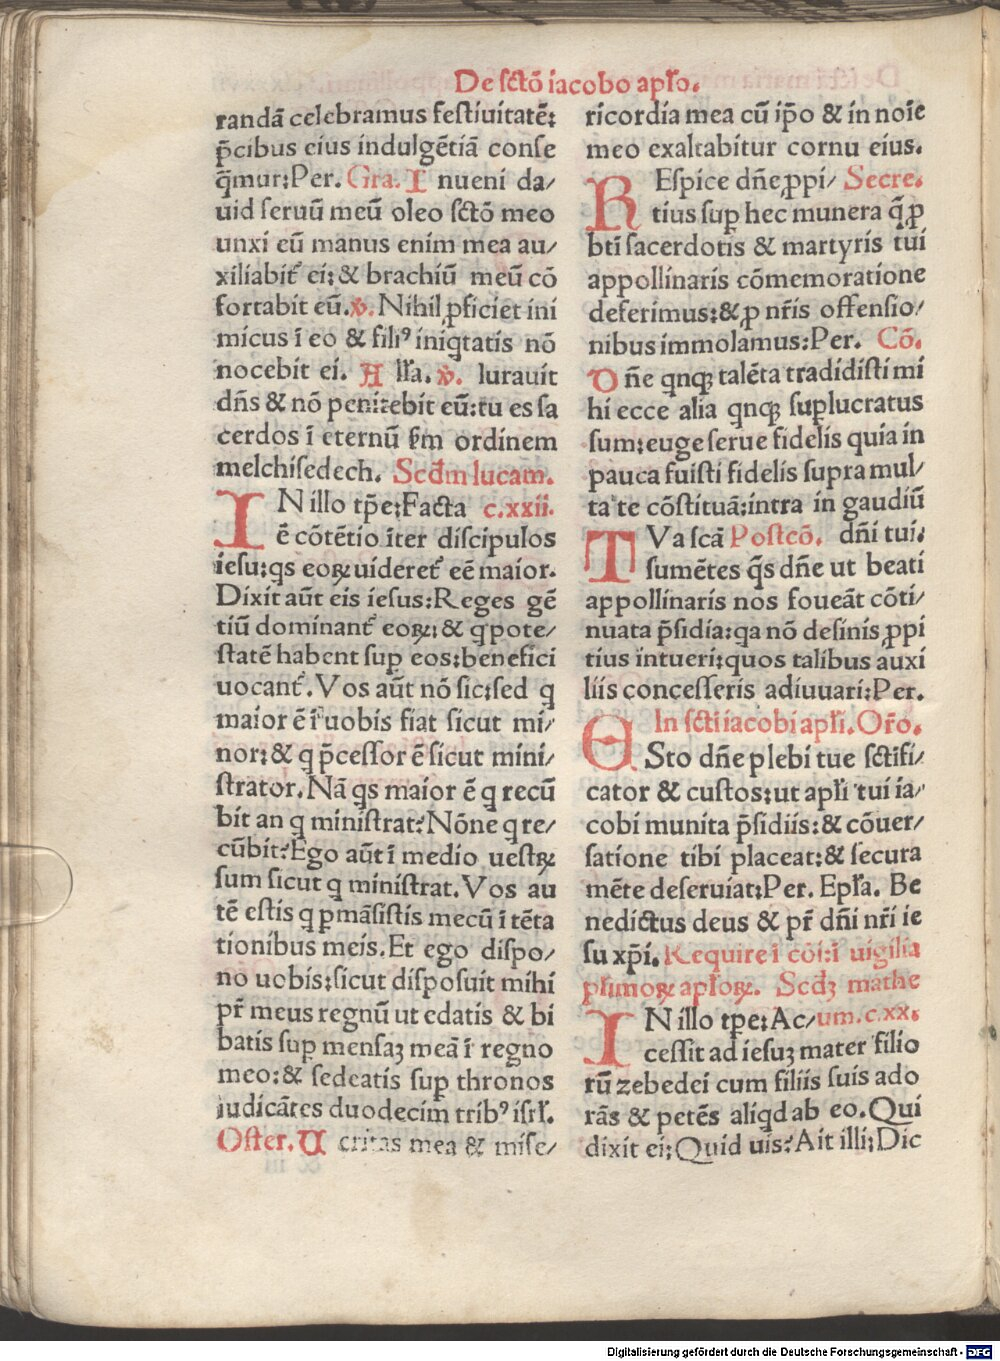 De sctō iacobo apło.
randā celebramus festiuitatē:
p̄cibus eius indulgētiā conse
q̄mur:Per. Gra. I nueni da/
uid seruū meū oleo sctō meo
unxi eū manus enim mea au/
xiliabit̉ ei:& brachiū meū cō
fortabit eū. ꝟ. Nihil ꝓficiet ini
micus ī eo & filiꝰ iniqtatis nō
nocebit ei. A lła. ꝟ. Iurauit
dn̄s & nō penitebit eū:tu es sa
cerdos ī eternū ẜm ordinem
melchisedech. Scđm lucam.
IN illo tp̄e:Facta c.xxii.
ē cōtētio īter discipulos
iesu:qs eoꝝ uideret̉ eē maior.
Dixit aūt eis iesus:Reges gē
tiū dominant̉ eoꝝ:& q pote/
statē habent sup eos:benefici
uocant̉. Vos aūt nō sic:sed q
maior ē ī uobis fiat sicut mi/
nor:& q p̄cessor ē sicut mini/
strator. Nā qs maior ē q recū
bit an q ministrat? Nōne q re/
cūbit? Ego aūt ī medio uestꝝ
sum sicut q ministrat. Vos au
tē estis q pmāsistis mecū ī tēta
tionibus meis. Et ego dispo/
no uobis:sicut disposuit mihi
pr̄ meus regnū ut edatis & bi
batis sup mensaꝫ meā ī regno
meo:& sedeatis sup thronos
iudicātes duodecim tribꝰ isrł.
Offer. U eritas mea & mise/
ricordia mea cū ip̄o & in noīe
meo exaltabitur cornu eius.
REspice dn̄e ꝓpi/ Secre.
tius sup hec munera q̄ ꝓ
bt̄i sacerdotis & martyris tui
appollinaris cōmemoratione
deferimus:& ꝓ nr̄is offensio/
nibus immolamus:Per. Cō.
D n̄e qnqꝫ talēta tradidisti mi
hi ecce alia qnqꝫ suplucratus
sum:euge serue fidelis quia in
pauca fuisti fidelis supra mul/
ta te cōstituā:intra in gaudiū
TVa scā Postcō. dn̄i tui:
sumētes q̄s dn̄e ut beati
appollinaris nos foueāt cōti/
nuata p̄sidia:qa nō desinis ꝓpi
tius intueri:quos talibus auxi
liis concesseris adiuuari:Per.
In scti iacobi apłi. Or̄o.
ESto dn̄e plebi tue sctifi/
cator & custos:ut apłi tui ia/
cobi munita p̄sidiis:& cōuer/
satione tibi placeat:& secura
mēte deseruiat:Per. Epła. Be
nedictus deus & pr̄ dn̄i nr̄i ie
su xp̄i. Require ī cōi:ī uigilia
plurimoꝝ apłoꝝ. Scđꝫ mathe
IN illo tp̄e:Ac/ um. c.xx.
cessit ad iesuꝫ mater filio
rū zebedei cum filiis suis ado
rās & petēs aliqd ab eo. Qui
dixit ei:Quid uis? Ait illi:Dic
Digitalisierung gefördert durch die Deutsche Forschungsgemeinschaft - DFG